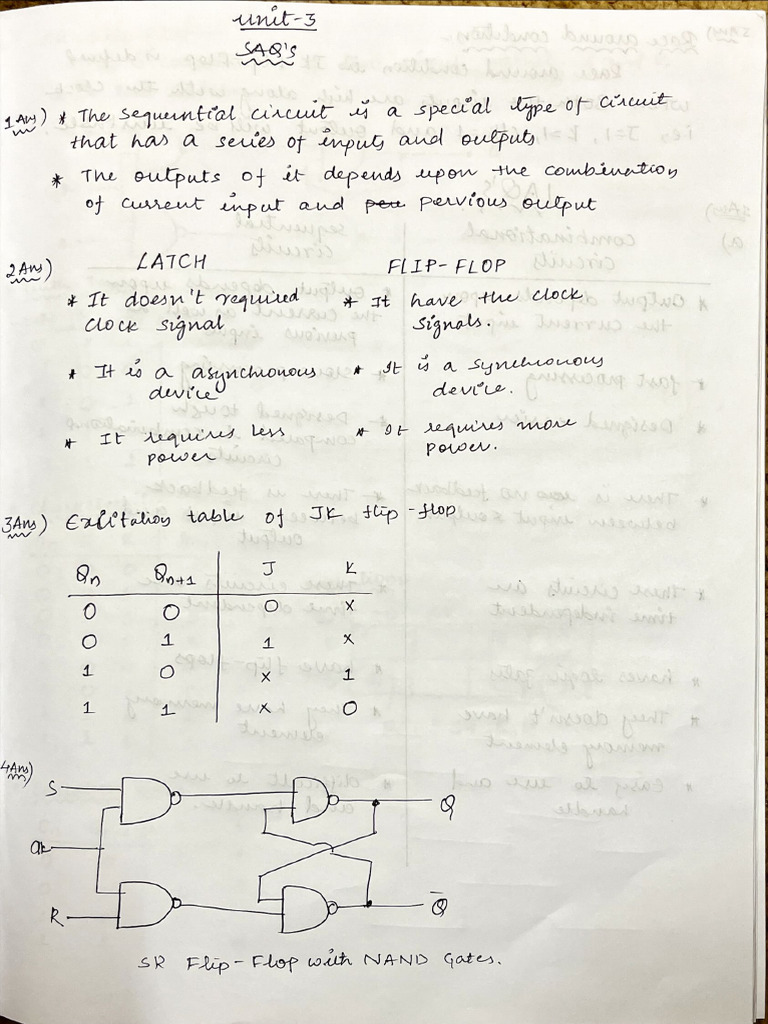 Unit-3
SAQ's
1Ans) * The sequential circuit is a special type of circuit
that has a series of inputs and outputs
* The outputs of it depends upon the combination
of current input and pervious output
2Ans) LATCH FLIP-FLOP
* It doesn't required * It have the clock
clock signal signals.
* It is a asynchronous * It is a synchronous
device device.
* It requires less * It requires more
power power.
3Ans) Excitation table of JK flip-flop
Qn Qn+1 J K
0 0 0 x
0 1 1 x
1 0 x 1
1 1 x 0
4Ans)
S Q
R Q̅
SR Flip-Flop with NAND Gates.